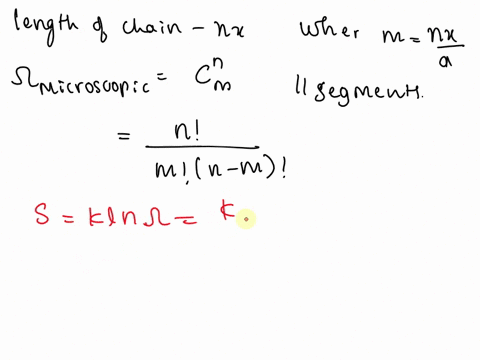 length of chain - nx
Wher m = nx/a
Ω microscopic = C^n_m
|| segment.
= n!/m!(n-m)!
S = k ln Ω = k